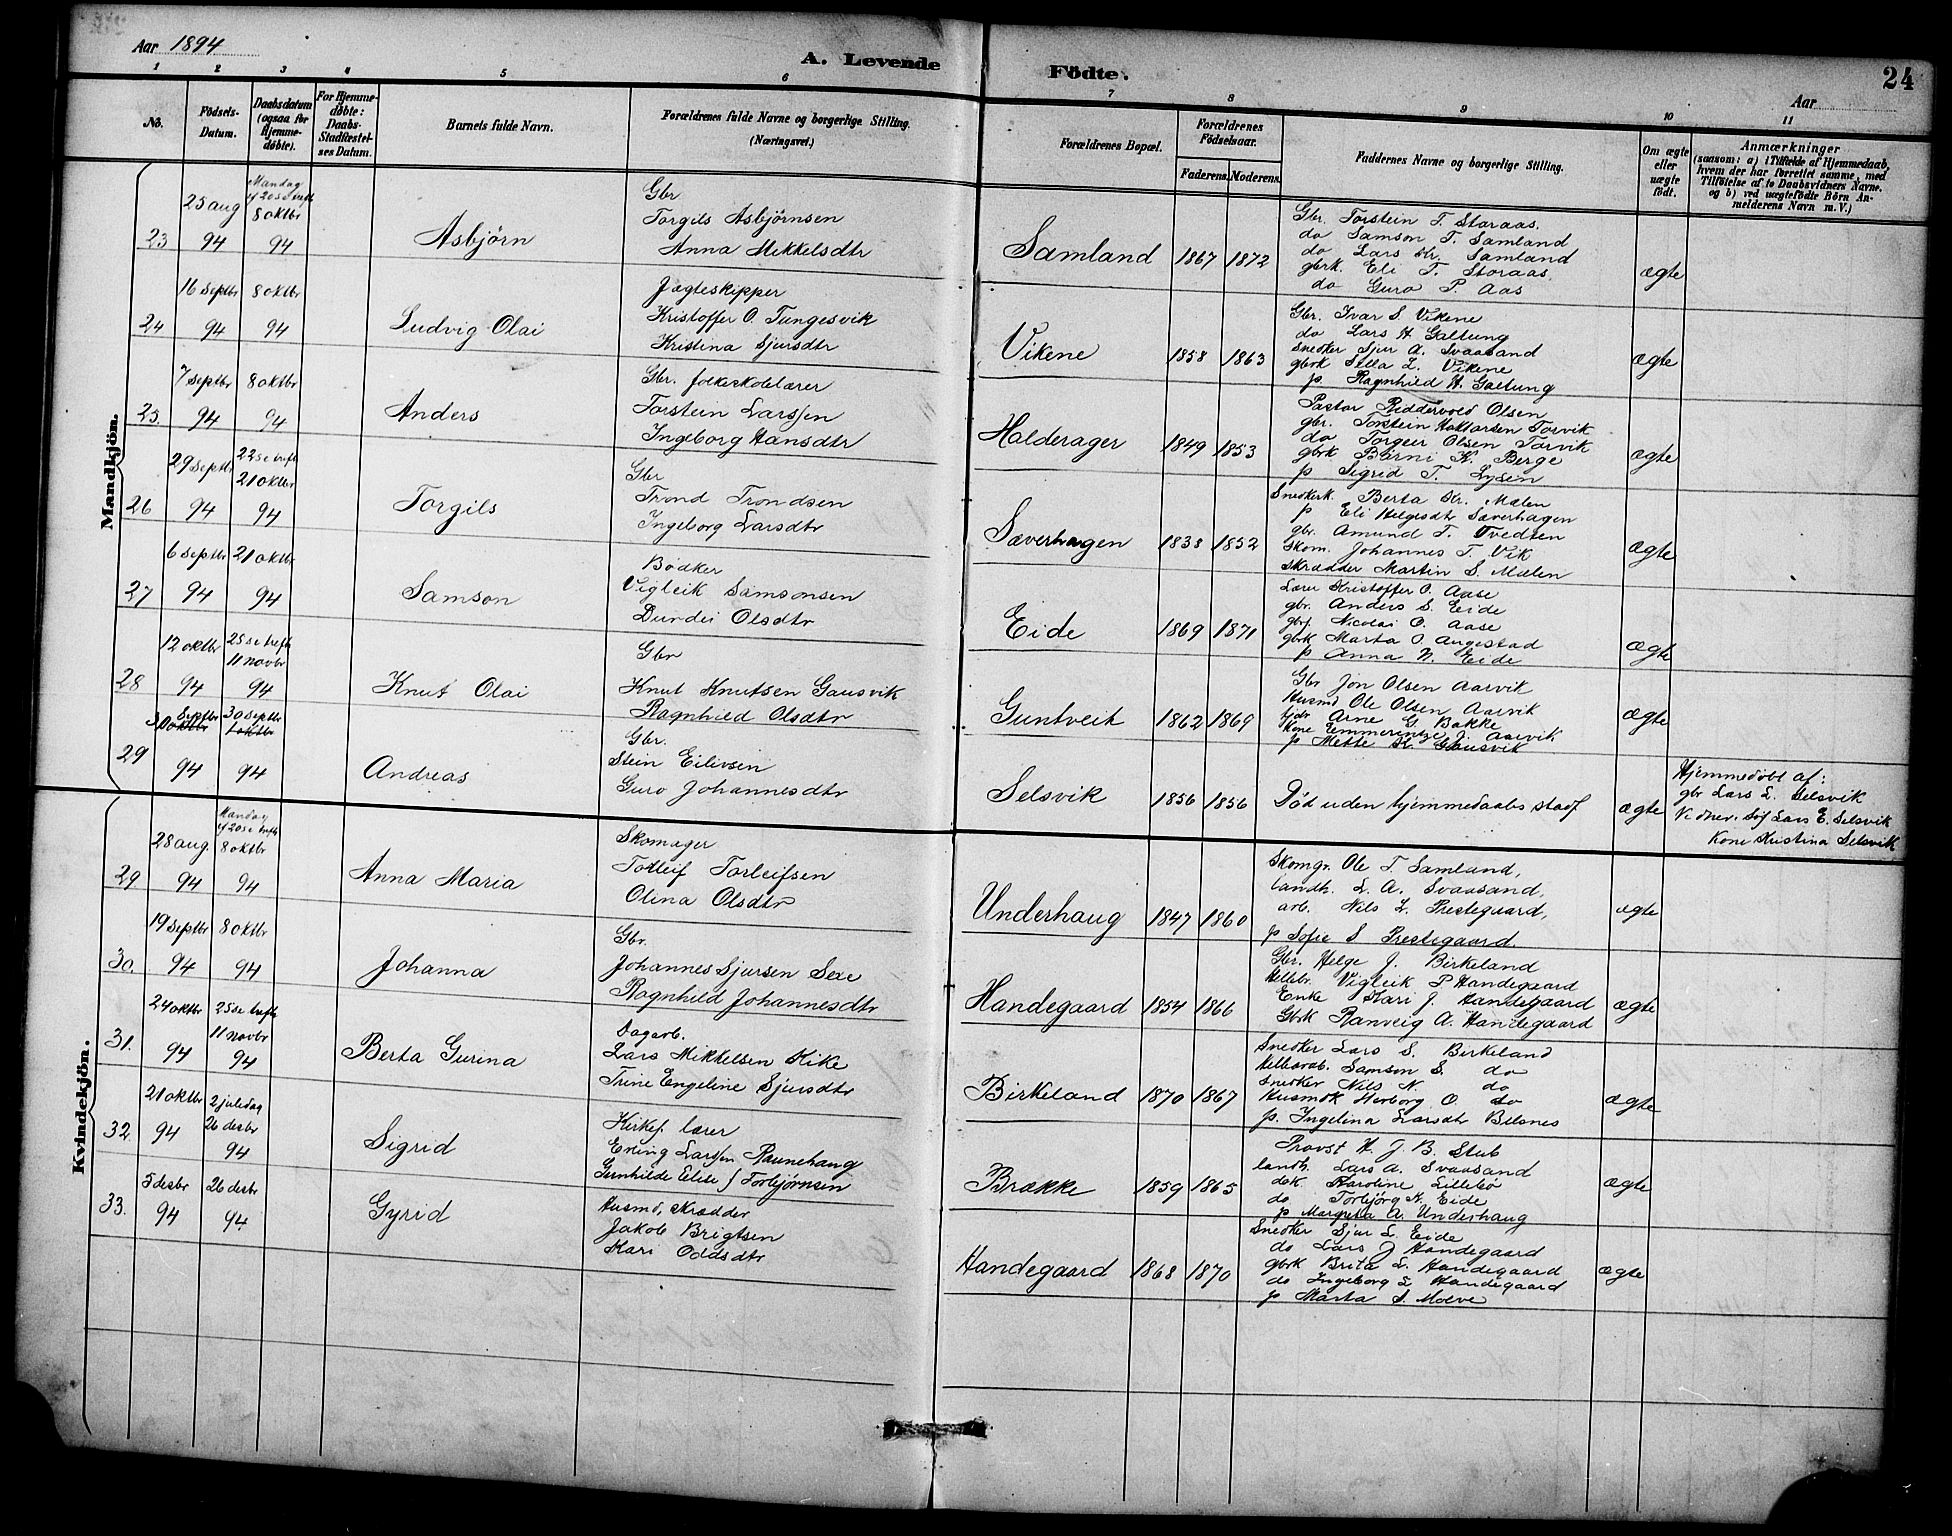 Aar 1894
A. Levende
Födte.
Aar
24
1 2 3 4 5 6 7 8 9 10 11
No.
Födsels-Datum.
Daabsdatum (ogsaa for Hjemme-döbte).
For Hjemme-döbte: Daabs-Stadfæstel-ses Datum.
Barnets fulde Navn.
Forældrenes fulde Navne og borgerlige Stilling. (Næringsvei.)
Forældrenes Bopæl.
Forældrenes Födselsaar.
Faderens. Moderens.
Faddernes Navne og borgerlige Stilling.
Om ægte eller uægte födt.
Anmærkninger
(saasom: a) i Tilfælde af Hjemmedaab, hvem der har forrettet samme, med Tilföielse af to Daabsvidners Navne, og b) ved uægtefödte Börn An-melderens Navn m. V.)
Mandkjön.
23
25 aug 94
Mandag ef 20 se trefh 8 oktbr 94
Asbjörn
Gbr
Torgils Asbjörnsen
Anna Mikkelsdtr
Samland
1867 1872
Gbr. Torstein T. Storaas.
do Samson T. Samland
do Lars Kr. Samland
gbrk. Eli T. Storaas.
do Guro P. Aas
ægte
24
16 septbr 94
8 oktbr 94
Ludvig Olai
Jægteskipper
Kristoffer O. Tungesvik
Kristina Sjursdtr
Vikene
1858 1863
Gbr. Ivar S. Vikene
do Lars H. Galtung
Snedker Sjur A. Svaasand
gbrk Silla L. Vikene
p. Ragnhild H. Galtung
ægte
25.
7 septbr 94
8 oktbr 94
Anders
Gbr. folkeskolelærer
Torstein Larssen
Ingeborg Hansdtr
Halderager
1849 1853
Pastor Riddervold Olsen
gbr. Torstein Haktorsen Torvik
do Torgeir Olsen Torvik
gbrk Börni K. Berge
p Sigrid T. Lysen
ægte
26
29 septbr 94
22 se trefh 21 oktbr 94
Torgils
Gbr
Trond Trondsen
Ingeborg Larsdtr
Sæverhagen
1838 1852
Snedkerk. Berta Kr. Mælen
p Eli Helgesdtr Sæverhagen
gbr. Amund T. Tvedten
Skom. Johannes T. Vik
Skrædder Martin S. Mælen
ægte
27
6 septbr 94
21 oktbr 94
Samson
Bödker
Vigleik Samsonsen
Durdei Olsdtr
Eide
1869 1871
Lærer Kristoffer O. Aase
gbr. Anders S. Eide
gbrf. Nicolai O. Aase
gbrk Marta O. Augestad
p Anna N. Eide
ægte
28
12 oktbr 94
25 se trefh 11 novbr 94
Knut Olai
Gbr
Knut Knutsen Gausvik
Ragnhild Olsdtr
Guntveit
1862 1869
Gbr Jon Olsen Aarvik
Husmd Ole Olsen Aarvik
Arne G. Bakke
Kone Emmerentze J. Aarvik
p Mette K. Gausvik
ægte
29
30 septbr oktbr 94
30 septbr 1 oktbr 94
Andreas
Gbr.
Stein Eilivsen
Guro Johannesdtr
Selsvik
1856 1856
Död uden hjemmedaabs stadf
ægte
Hjemmedöbt af:
gbr Lars L. Selsvik
Vidner. Lars E. Selsvik
Kone Kristina Selsvik
Kvindekjön.
29
28 aug. 94
Mandag ef 20 se trefh 8 oktbr 94
Anna Maria
Skomager
Torleif Torleifsen
Olina Olsdtr
Underhaug
1847 1860
Skomgr. Ole T. Samland,
landh. L. A. Svaasand,
arb. Nils L. Prestegaard,
p Sofie S Prestegaard.
ægte
30.
19 septbr 94
8 oktbr 94
Johanna
Gbr.
Johannes Sjursen Sexe
Ragnhild Johannesdtr
Handegaard
1854 1866
Gbr. Helge J. Birkeland
Vigleik P Handegaard
Enke Kari J. Handegaard
Gbrk Ranveig A. Handegaard
ægte
31.
24 oktbr 94
25 se trefh 11 novbr 94
Berta Gurina
Dagarb.
Lars Mikkelsen Kike
Trine Engeline Sjursdtr
Birkeland
1870 1867
Snedker Lars S. Birkeland
Samson S. do
Snedker Nils N. do
Husmdk Herborg O. do
p. Ingelina Larsdtr Belsnes
ægte
32.
21 oktbr 94
2 juledag 26 desbr 94
Sigrid
Kirkes. lærer
Erling Larssen Raunehaug
Gunhilde Elise Torbjörnsen
Brække
1859 1865
Provst H. J. B. Stub
landh. Lars A. Svaasand
dok Karoline Lillebö
do Torbjörg A. Eide
p Margreta A. Underhaug
ægte
33.
3 desbr 94
26 desbr 94
Gyrid
Husmd, skrædder
Jakob Brigtsen
Kari Oddsdtr
Handegaard
1868 1870
Snedker Sjur L. Eide
do Lars J Handegaard
gbrk Brita L. Handegaard
do Ingeborg L Handegaard
p Marta S. Moeve
ægte